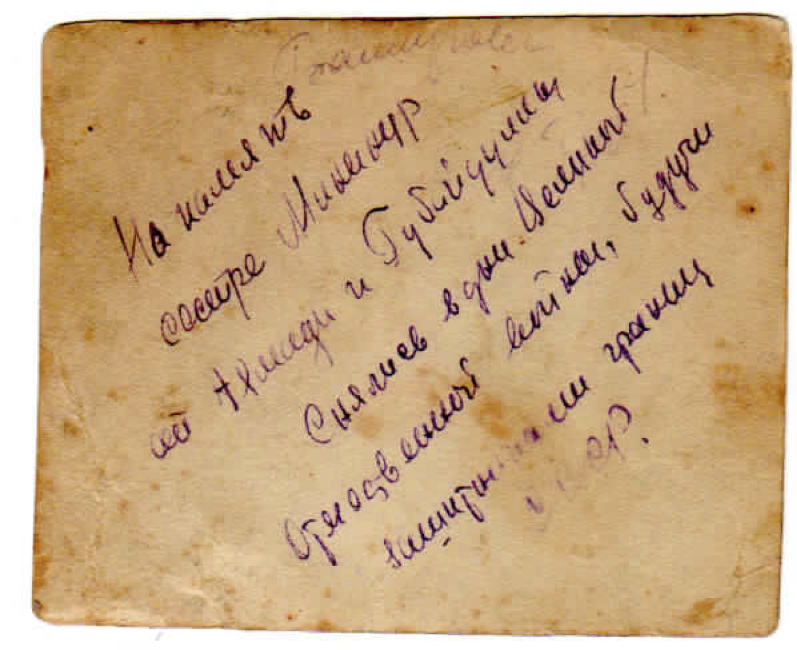 На память
сестре Миннур
от Ахмади и Губайдуллы
Снялись в дни Великой
Отечественной войны, будучи
защитниками границ
СССР.